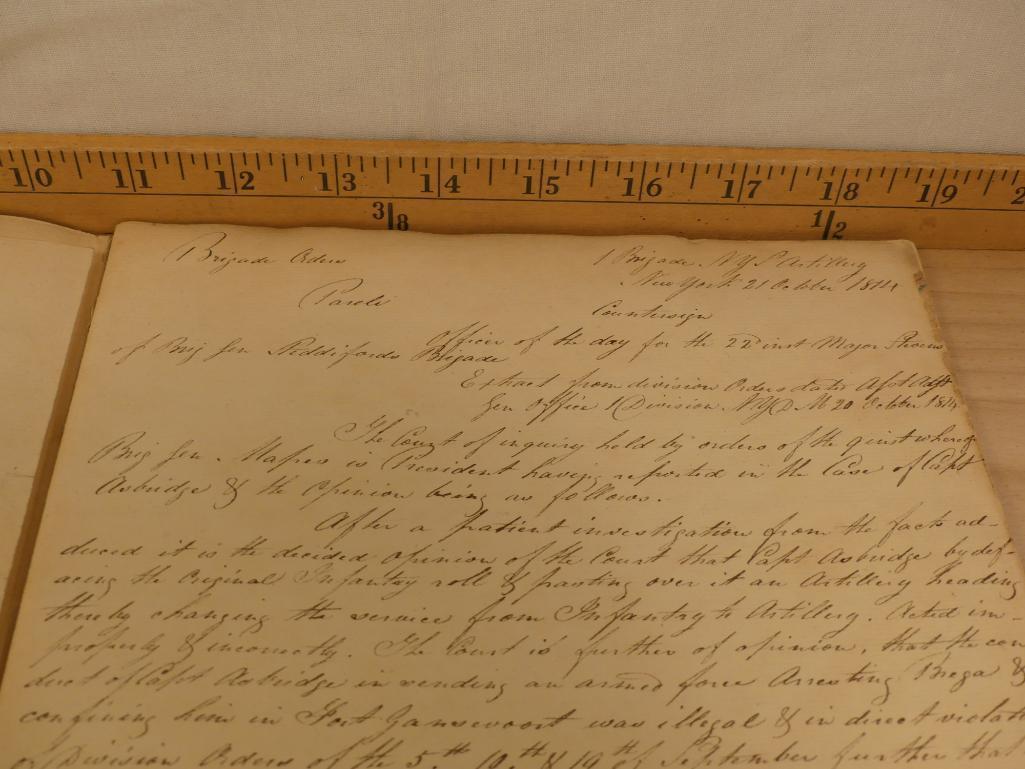 10 11 12 13 14 15 16 17 18 19 2
3/8 1/2
Brigade Orders 1 Brigade N.Y.S Artillery
New York 21 October 1814
Parole Countersign
Officer of the day for the 22d inst Major
of Brig Gen Brigade
Extract from division Orders dated Adjt
Gen Office 1 Division N.Y.D M 20 October 1814
The Court of inquiry held by orders of the 9 inst whereof
Brig Gen. Mapes is President having reported in the Case of Capt
Asbridge & the Opinion being as follows.
After a patient investigation from the facts ad-
duced it is the decided opinion of the Court that Capt Asbridge by def-
acing the Original Infantry roll & pasting over it an Artillery heading
thereby changing the service from Infantry to Artillery. Acted im-
properly & incorrectly. The Court is further of opinion, that the con
duct of Capt Asbridge in sending an armed force Arresting Brega &
confining him in Fort Gansevoort was illegal & in direct violati
of Division Orders of the 5th 10th & 19th of September further that